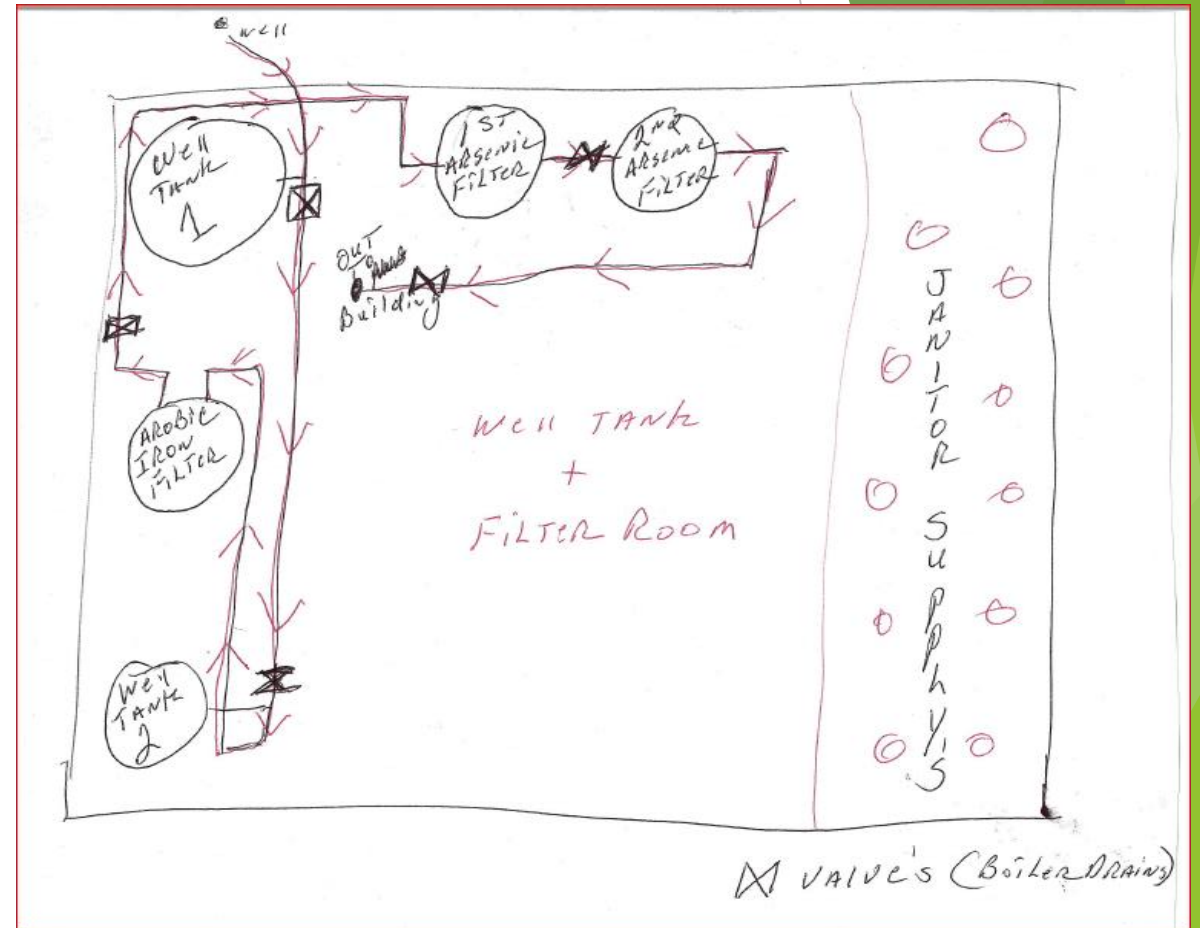 Well
Well
Tank
1
1ST
Arsenic
Filter
2nd
Arsenic
Filter
Out
Building
Arobic
Iron
Filter
Well Tank
+
Filter Room
Well
Tank
2
Janitor Supphy's
⋈ Valve's (Boiler Drains)